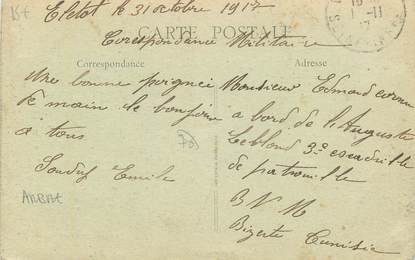 Eletot le 31 octobre 1917
CARTE POSTALE
Corespondance Militaire
Correspondance
Adresse
Une bonne poignei
de main le bonjour
a tous
Emile
Monsieur Edmond
a bord de l'Auguste
Leblond 3e escadrille
de patrouille
B N M
Bizerte Tunisie